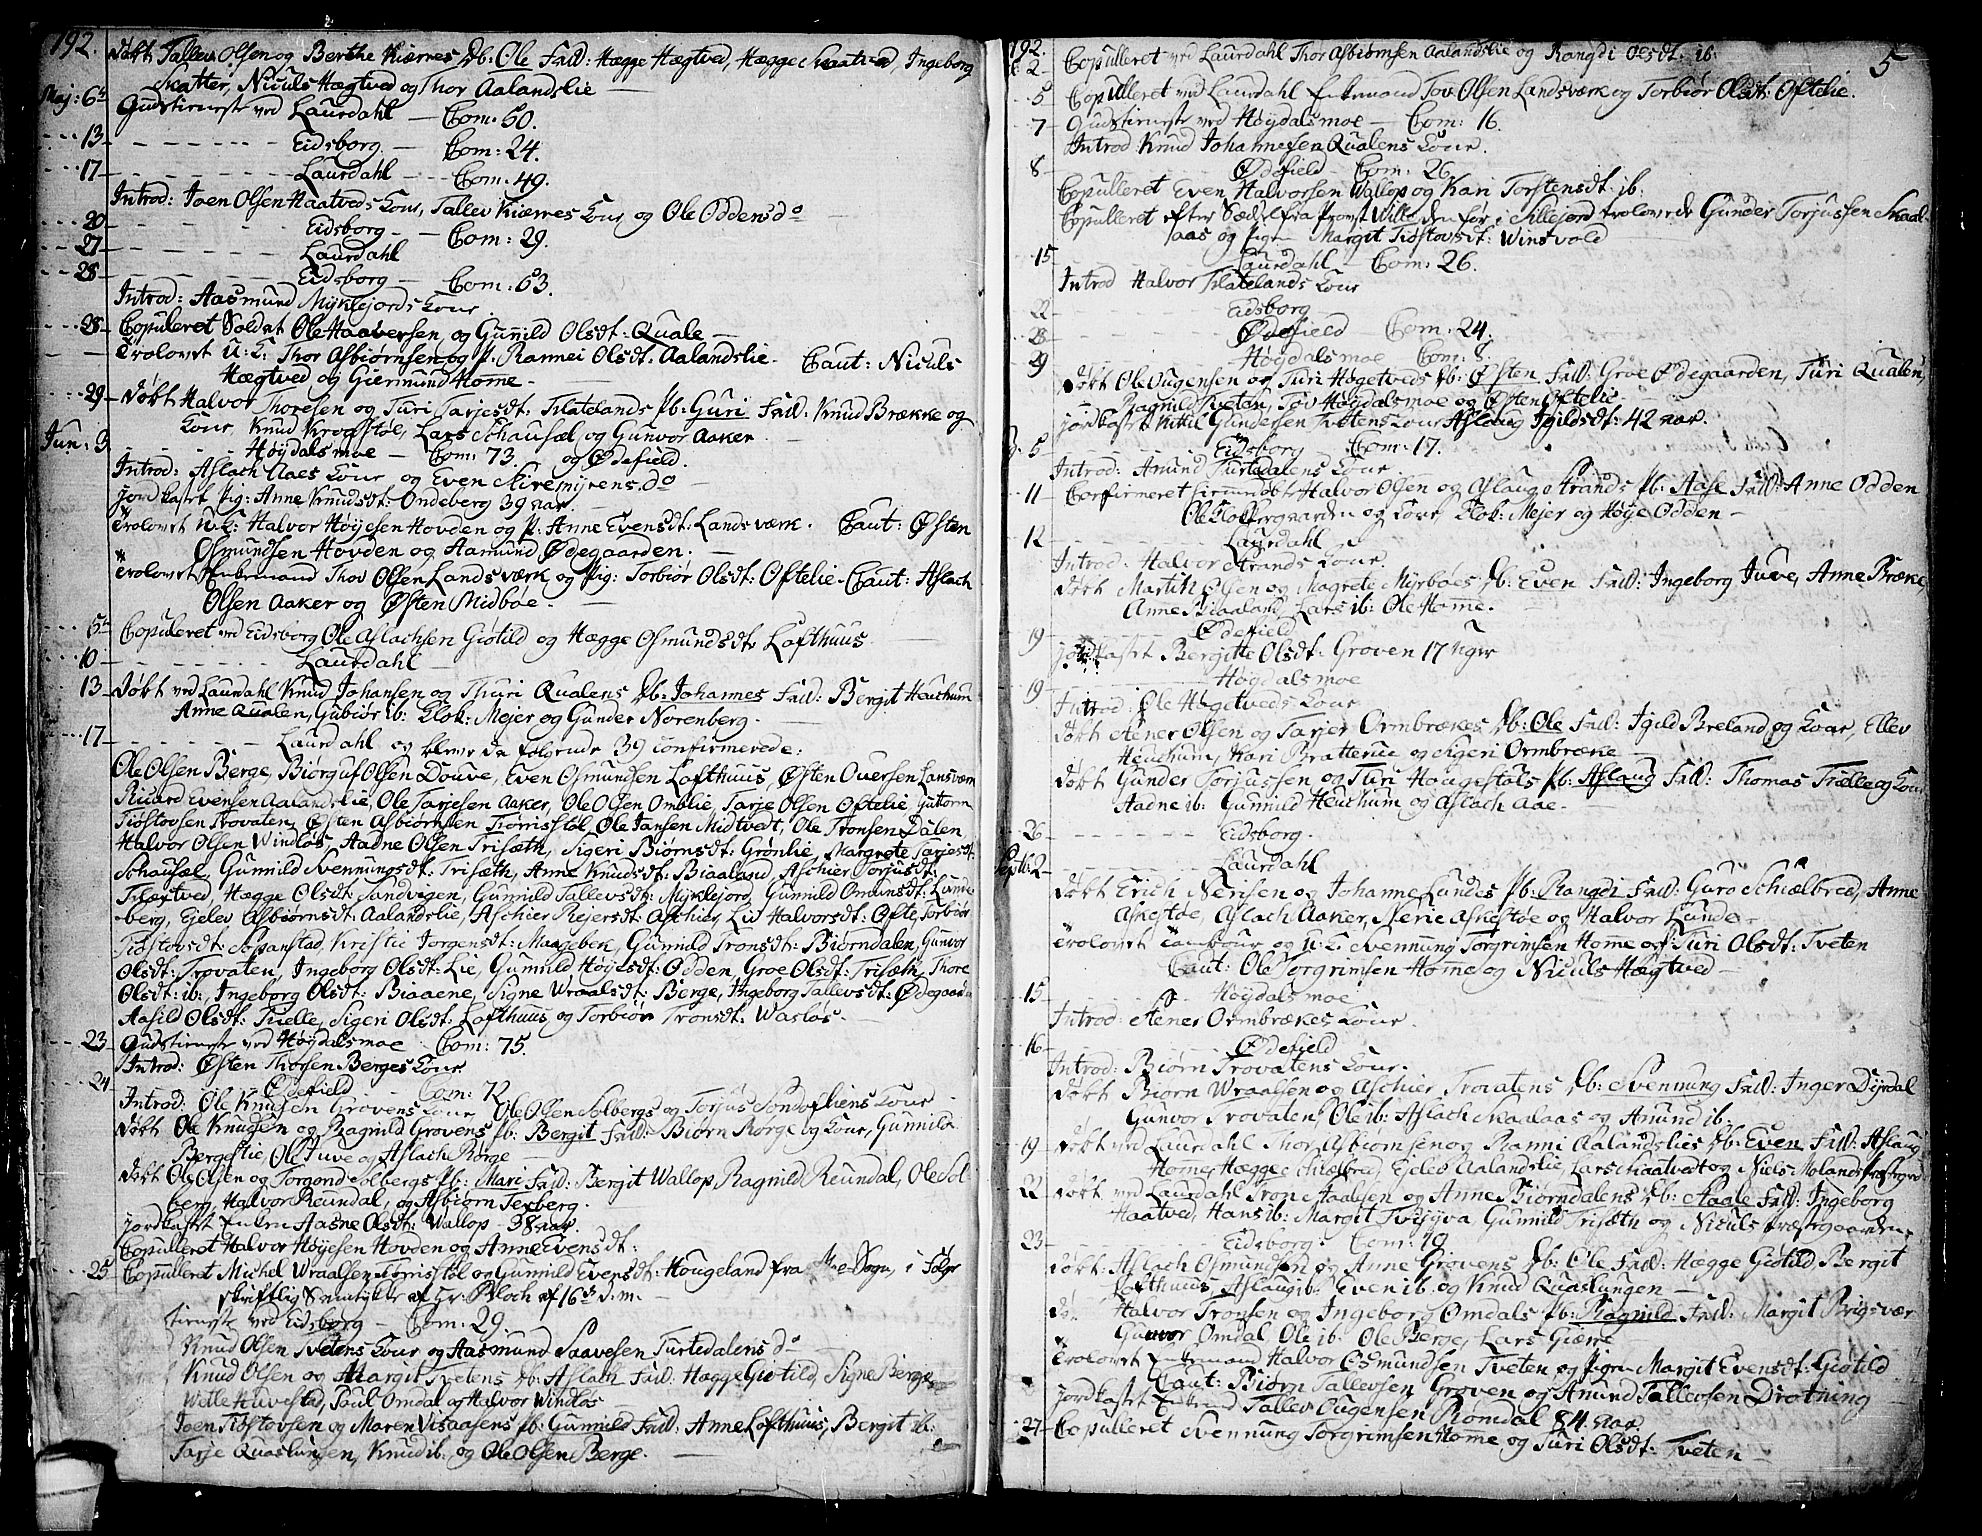 192.
døbt Tallev Olsen og Berthe Kiærres db: Ole Fad: Hægge Hægtved, Hægge Skaatved, Ingeborg
Skatter, Niculs Hægtved og Thor Aalandslie —
Maj: 6te Gudstieneste ved Laurdahl — Com: 50.
13 — Eidsborg — Com: 24.
17 — Laurdahl — Com: 49.
Introd: Joen Olsen Haatveds Kone, Tallev Kiærres Kone og Ole Oddens do
20 — Eidsborg — Com: 29.
27 — Laurdahl
28 — Eidsborg — Com: 63.
Introd: Aasmund Myklejords Kone
28 Copuleret Soldat Ole Haaversen og Gunnild Olsdt: Quale —
Trolovet U: K: Thor Asbiørnsen og P: Rannei Olsdt: Aalandslie. Caut: Niculs
Hægtved og Giermund Home —
29 døbt Halvor Thoresen og Turi Tarjesdt: Tilatelands Pb: Guri Fad: Knud Brække og
Kone, Knud Krogstøe, Lars Schausæl og Gunvor Aaker
Jun: 3 — Høydalsmoe — Com: 73. og Ødefield.
Introd: Aslach Aaes Kone og Even Miremyrens do
Jordkastet Pig: Anne Knudsdt: Ondeberg 39 aar.
Trolovet U.K: Halvor Høyesen Hovden og P: Anne Evensdt: Landsværk. Caut: Østen
Osmundsen Hovden og Aamund Ødegaarden. —
Trolovet Enkemand Thov Olsen Landsværk og Pig: Torbiør Olsdt: Oftelie — Caut: Aslach
Olsen Aaker og Østen Midbøe. —
5te Copuleret ved Eidsborg Ole Aslachsen Giøtild og Hægge Osmundsdt: Lofthuus
10 — Laurdahl —
13 Døbt ved Laurdahl Knud Johansen og Thuri Qualens db: Johannes Fad: Bergit Heuchum
Anne Qualen, Gubiør ib: Klok: Mejer og Gunder Norenberg. —
17 — Laurdahl og bleve da følgende 39 confirmerede:
Ole Olsen Berge, Biørguf Olsen Douve, Even Osmundsen Lofthuus, Østen Ouersen Lansværn
Ricard Evensen Aalandslie, Ole Tarjesen Aaker, Ole Olsen Omblie, Tarje Olsen Oftelie, Guttorm
Tiøstovsen Trovaten, Østen Asbiørnsen Tørrisstøl, Ole Jansen Midtvedt, Ole Tronsen Dalen
Halvor Olsen Windløs, Aadne Olsen Trisæth, Sigeri Biørnsdt: Grønlie, Margrete Tarjesdt:
Schausæl, Gunnild Svennungsdt: Trisæth, Anne Knudsdt: Biaaland, Aschier Torjusdt:
Tilæstved Hægge Olsdt: Sandvigen, Gunnild Tallevsdt: Myklejord, Gunnild Omunsdt: Lunde-
berg, Ejelev Asbiørnsdt: Aalandslie, Aschier Rejersdt: Aschier, Liv Halvorsdt: Ofte, Torbiør
Tiøstovsdt: Sopanstad, Kristie Jørgensdt: Maagebek, Gunnild Tronsdt: Biørndalen, Gunvor
Olsdt: Trovaten, Ingeborg Olsdt: Lie, Gunnild Høyesdt: Odden, Groe Olsdt: Trisæth, Thore
Olsdt: ib:, Ingeborg Olsdt: Biaaene, Signe Wraalsdt: Berge, Ingeborg Tallevsdt: Ødegaarden
Aasild Olsdt: Tuelle, Sigeri Olsdt: Lofthuus og Torbiør Tronsdt: Wasløs. —
23 Gudstieneste ved Høydalsmoe Com: 75.
Introd: Østen Thorsen Berges Kone
24 — Ødefield — Com: 72
Introd: Ole Knudsen Grovens Kone, Ole Olsen Solbergs og Torjus Kone
døbt Ole Knudsen og Ragnild Grovens Pb: Bergit Fad: Biørn Rørge og Kone, Gunnild
Bergestie, Ole Juve og Aslach Rørge —
døbt Ole Olsen og Torgond Solbergs Pb: Mari Fad: Bergit Wallop, Ragnild Reundal, Ole Sol-
berg, Halvor Reundal, og Asbiørn Texberg.
Jordkastet Enken Aasne Olsdt: Wallop — 38 aar.
Copulleret Halvor Høyesen Hovden og Anne Evensdt:
25 Copulleret Michel Wraalsen Tørrisstøl og Gunnild Evensdt: Hougeland fra Sogn, i Følge
skriftlig Samtykke af Hr: Bloch af 16de d: m: —
tieneste ved Eidsborg — Com: 29.
Knud Olsen Tvetens Kone og Aasmund Saavesen Turtedalens do
Knud Olsen og Margit Tvetens db: Aslath Fad: Hægge Giøtild, Signe Berge
Wetle Huvestad, Paul Omdal og Halvor Windløs
Joen Tiøstovsen og Maren Visaasens Pb: Gunnild Fad: Anne Lofthuus, Bergit ib:
Tarje Quaslungen, Knud ib: og Ole Olsen Berge. —
192. 5
2 Copulleret ved Laurdahl Thor Asbiørnsen Aalandslie og Rangdi Olsdt: ib:
5 Copulleret ved Laurdahl Enkemand Tov Olsen Landsværk og Torbiør Olsdt: Oftelie.
7 Gudstieneste ved Høydalsmoe — Com: 16.
Introd Knud Johannesen Qualens Kone.
8 — Ødefield — Com: 26
Copulleret Even Halvorsen Wallop og Kari Torstensdt: ib:
Copulleret efter Sædel fra Provst Wille den før i Sillejord trolovede Gunder Torjussen Skaal-
aas og Pigen Margit Tiøstovsdt: Winsvold
15 — Laurdahl — Com: 26.
Introd Halvor Tilatelands Kone
22 — Eidsborg
28 — Ødefield — Com: 24.
29 — Høydalsmoe Com: 8.
døbt Ole Ougensen og Turi Høgetveds Pb: Østen Fad: Groe Ødegaarden, Turi Qualen,
Ragnild Tveten, Tov Høydalsmoe og Østen Oftelie —
Jordkastet Kittil Gundersen Tvetens Kone Aslaug Igildsdt: 42 aar.
5 — Eidsborg Com: 17.
Introd: Amund Turtedalens Kone
11 Confirmeret Halvor Olsen og Aslaug Strands Pb: Aase Fad: Anne Odden
Ole og Kone Klok: Mejer og Høye Odden —
12 — Laurdahl
Introd: Halvor Strands Kone
døbt Martin Olsen og Magrete Myrboes db: Even Fad: Ingeborg Juve, Anne Bræke,
Anne Biaaland, Lars ib: Ole Home.
19 — Ødefield —
Jordkastet Bergitte Olsdt: Groven 17 Uger
19 — Høydalsmoe
Introd: Ole Høgetveds Kone
døbt Stener Olsen og Tarjer Ormbrækes db: Ole Fad: Igild Breland og Kone, Ellev
Heuchum, Kari Bratterud og Sigeri Ormbræke —
døbt Gunder Torjussen og Turi Hougestøls Pb: Aslaug Fad: Thomas Trælle og Kone
Aadne ib: Gunnild Heuchum og Aslach Aae.
26 — Eidsborg.
Septbr: 2 — Laurdahl
døbt Erich Nerisen og Johanne Lundes Pb: Rangdi Fad: Guro Schiælbred, Anne
Askestøe, Aslach Aaker, Nerie Askestøe og Halvor Lunde —
Trolovet Tambour og U.K. Svennung Torgrimsen Home og P: Turi Olsdt: Tveten
Caut: Ole Torgrimsen Home og Niculs Hægtved —
15 — Høydalsmoe
Introd: Stener Ormbrækes Kone.
16 — Ødefield
Introd: Biørn Trovatens Kone.
døbt Biørn Wraalsen og Aschier Trovatens db: Svennung Fad: Inger Dyrdal
Gunvor Trovaten, Ole ib: Aslach Skaalaas og Amund ib:
19 døbt ved Laurdahl Thor Asbiørnsen og Ranni Aalandslies db: Even Fad: Aslaug
Home, Hægge Schiælbred, Ejelev Aalandslie, Lars Schaatvedt og Niels Moland
22 døbt ved Laurdahl Tron Aadsen og Anne Biørndalens db: Aasle Fad: Ingeborg
Haatved, Hans ib: Margit Trisyva, Gunnild Trisæth og Niculs Præstegaarden.
23 — Eidsborg: Com: 19
døbt: Aslach Osmundsen og Anne Grovens db: Ole Fad: Hægge Giøtild, Bergit
Lofthuus, Aslaug ib: Even ib: og Knud Quaslungen —
do: Halvor Tronsen og Ingeborg Omdals Pb: Ragnild Fad: Margit Brigsvær
Gunvor Omdal Ole ib: Ole Berge, Lars Giære
Trolovet Enkemand Halvor Osmundsen Tveten og Pigen Margit Evensdt: Giøtild
Caut: Biørn Tallevsen Groven og Amund Tallevsen Drotning
Jordkastet Enkemd Tallev Ougensen Romdal 84. aar
27 Copulleret Svennung Torgrimsen Home og Turi Olsdt: Tveten —